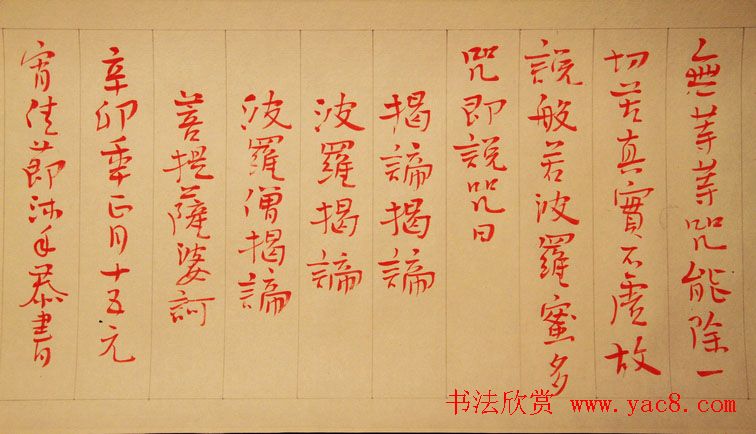 無等等咒能除一
切苦真實不虛故
說般若波羅蜜多
咒即說咒曰
揭諦揭諦
波羅揭諦
波羅僧揭諦
菩提薩婆訶
辛卯年正月十五元
宵佳節沐手恭書
书法欣赏 www.yac8.com